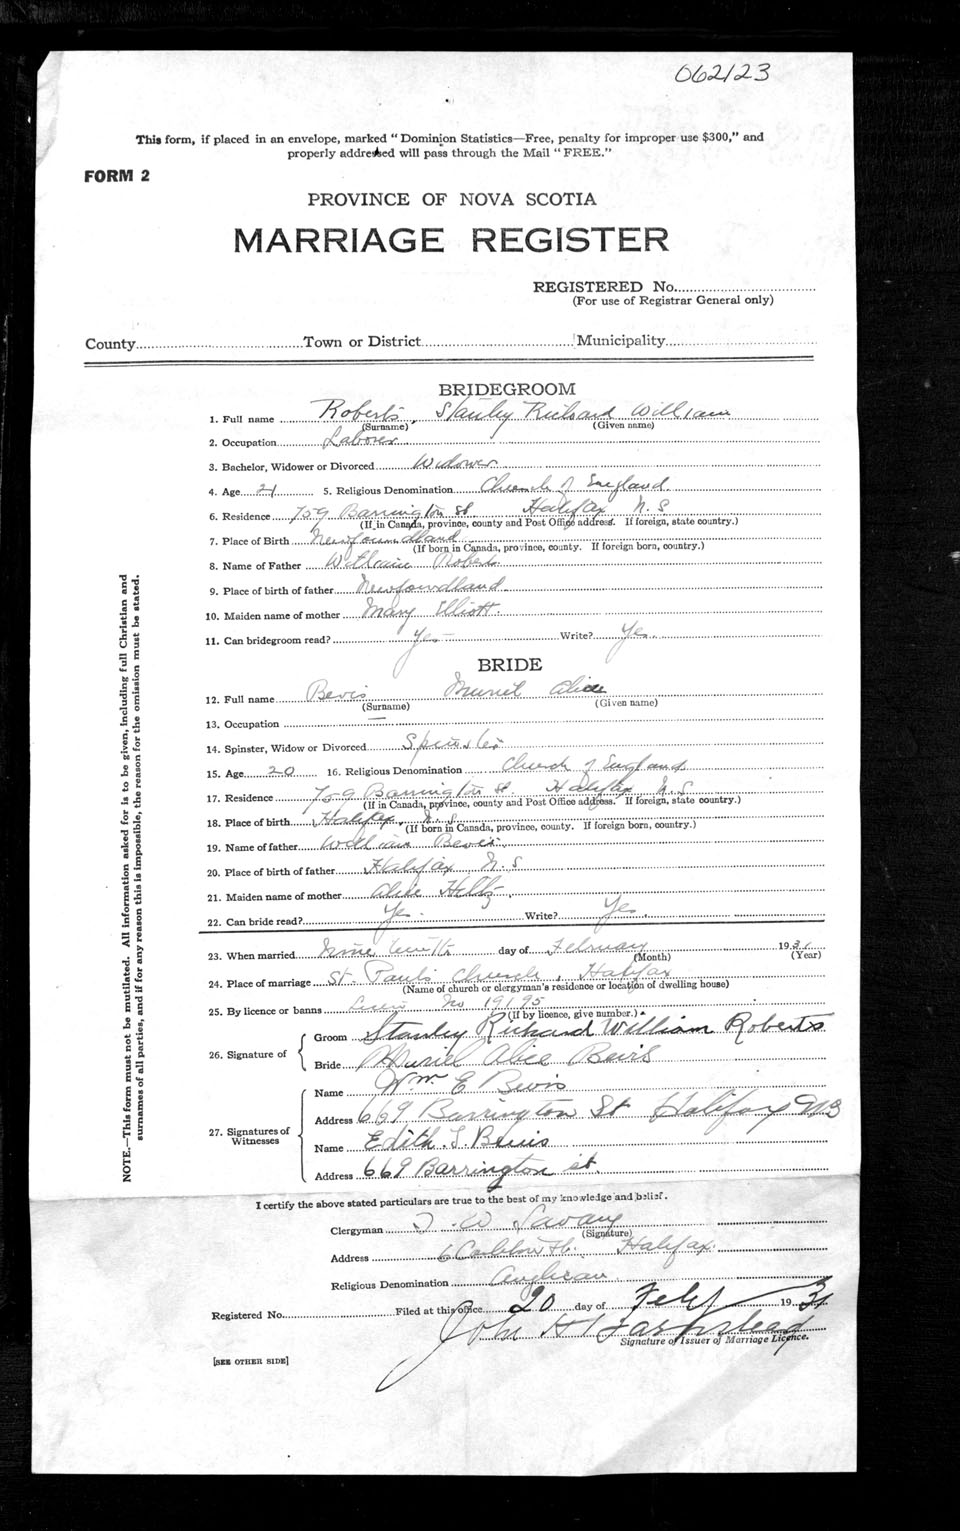 062123
This form, if placed in an envelope, marked "Dominion Statistics—Free, penalty for improper use $300," and
properly addressed will pass through the Mail "FREE."
FORM 2
PROVINCE OF NOVA SCOTIA
MARRIAGE REGISTER
REGISTERED No.
(For use of Registrar General only)
County Town or District Municipality
BRIDEGROOM
1. Full name Roberts, Stanley Richard William
(Surname) (Given name)
2. Occupation Laborer
3. Bachelor, Widower or Divorced Widower
4. Age 21 5. Religious Denomination Church of England
6. Residence 759 Barrington St Halifax N.S
(If in Canada, province, county and Post Office address. If foreign, state country.)
7. Place of Birth Newfoundland
(If born in Canada, province, county. If foreign born, country.)
8. Name of Father William Roberts
9. Place of birth of father Newfoundland
10. Maiden name of mother Mary Elliott
11. Can bridegroom read? Yes Write? Yes
BRIDE
12. Full name Bevis Muriel Alice
(Surname) (Given name)
13. Occupation —
14. Spinster, Widow or Divorced Spinster
15. Age 20 16. Religious Denomination Church of England
17. Residence 759 Barrington St Halifax N.S
(If in Canada, province, county and Post Office address. If foreign, state country.)
18. Place of birth Halifax, N.S
(If born in Canada, province, county. If foreign born, country.)
19. Name of father William Bevis
20. Place of birth of father Halifax N.S
21. Maiden name of mother Alice
22. Can bride read? Yes. Write? Yes
23. When married day of February 1931
(Month) (Year)
24. Place of marriage St. Paul's Church, Halifax
(Name of church or clergyman's residence or location of dwelling house)
25. By licence or banns No 19195
(If by licence, give number.)
26. Signature of
Groom Stanley Richard William Roberts
Bride Muriel Alice Bevis
27. Signatures of Witnesses
Name Wm E Bevis
Address 669 Barrington St Halifax NS
Name Edith. S. Bevis
Address 669 Barrington st
I certify the above stated particulars are true to the best of my knowledge and belief.
Clergyman W Savary
(Signature)
Address 6 Carleton St. Halifax.
Religious Denomination Anglican
Registered No. Filed at this office 20 day of Feby 1931
John H
Signature of Issuer of Marriage Licence.
[SEE OTHER SIDE]
NOTE.—This form must not be mutilated. All information asked for is to be given, including full Christian and
surnames of all parties, and if for any reason this is impossible, the reason for the omission must be stated.